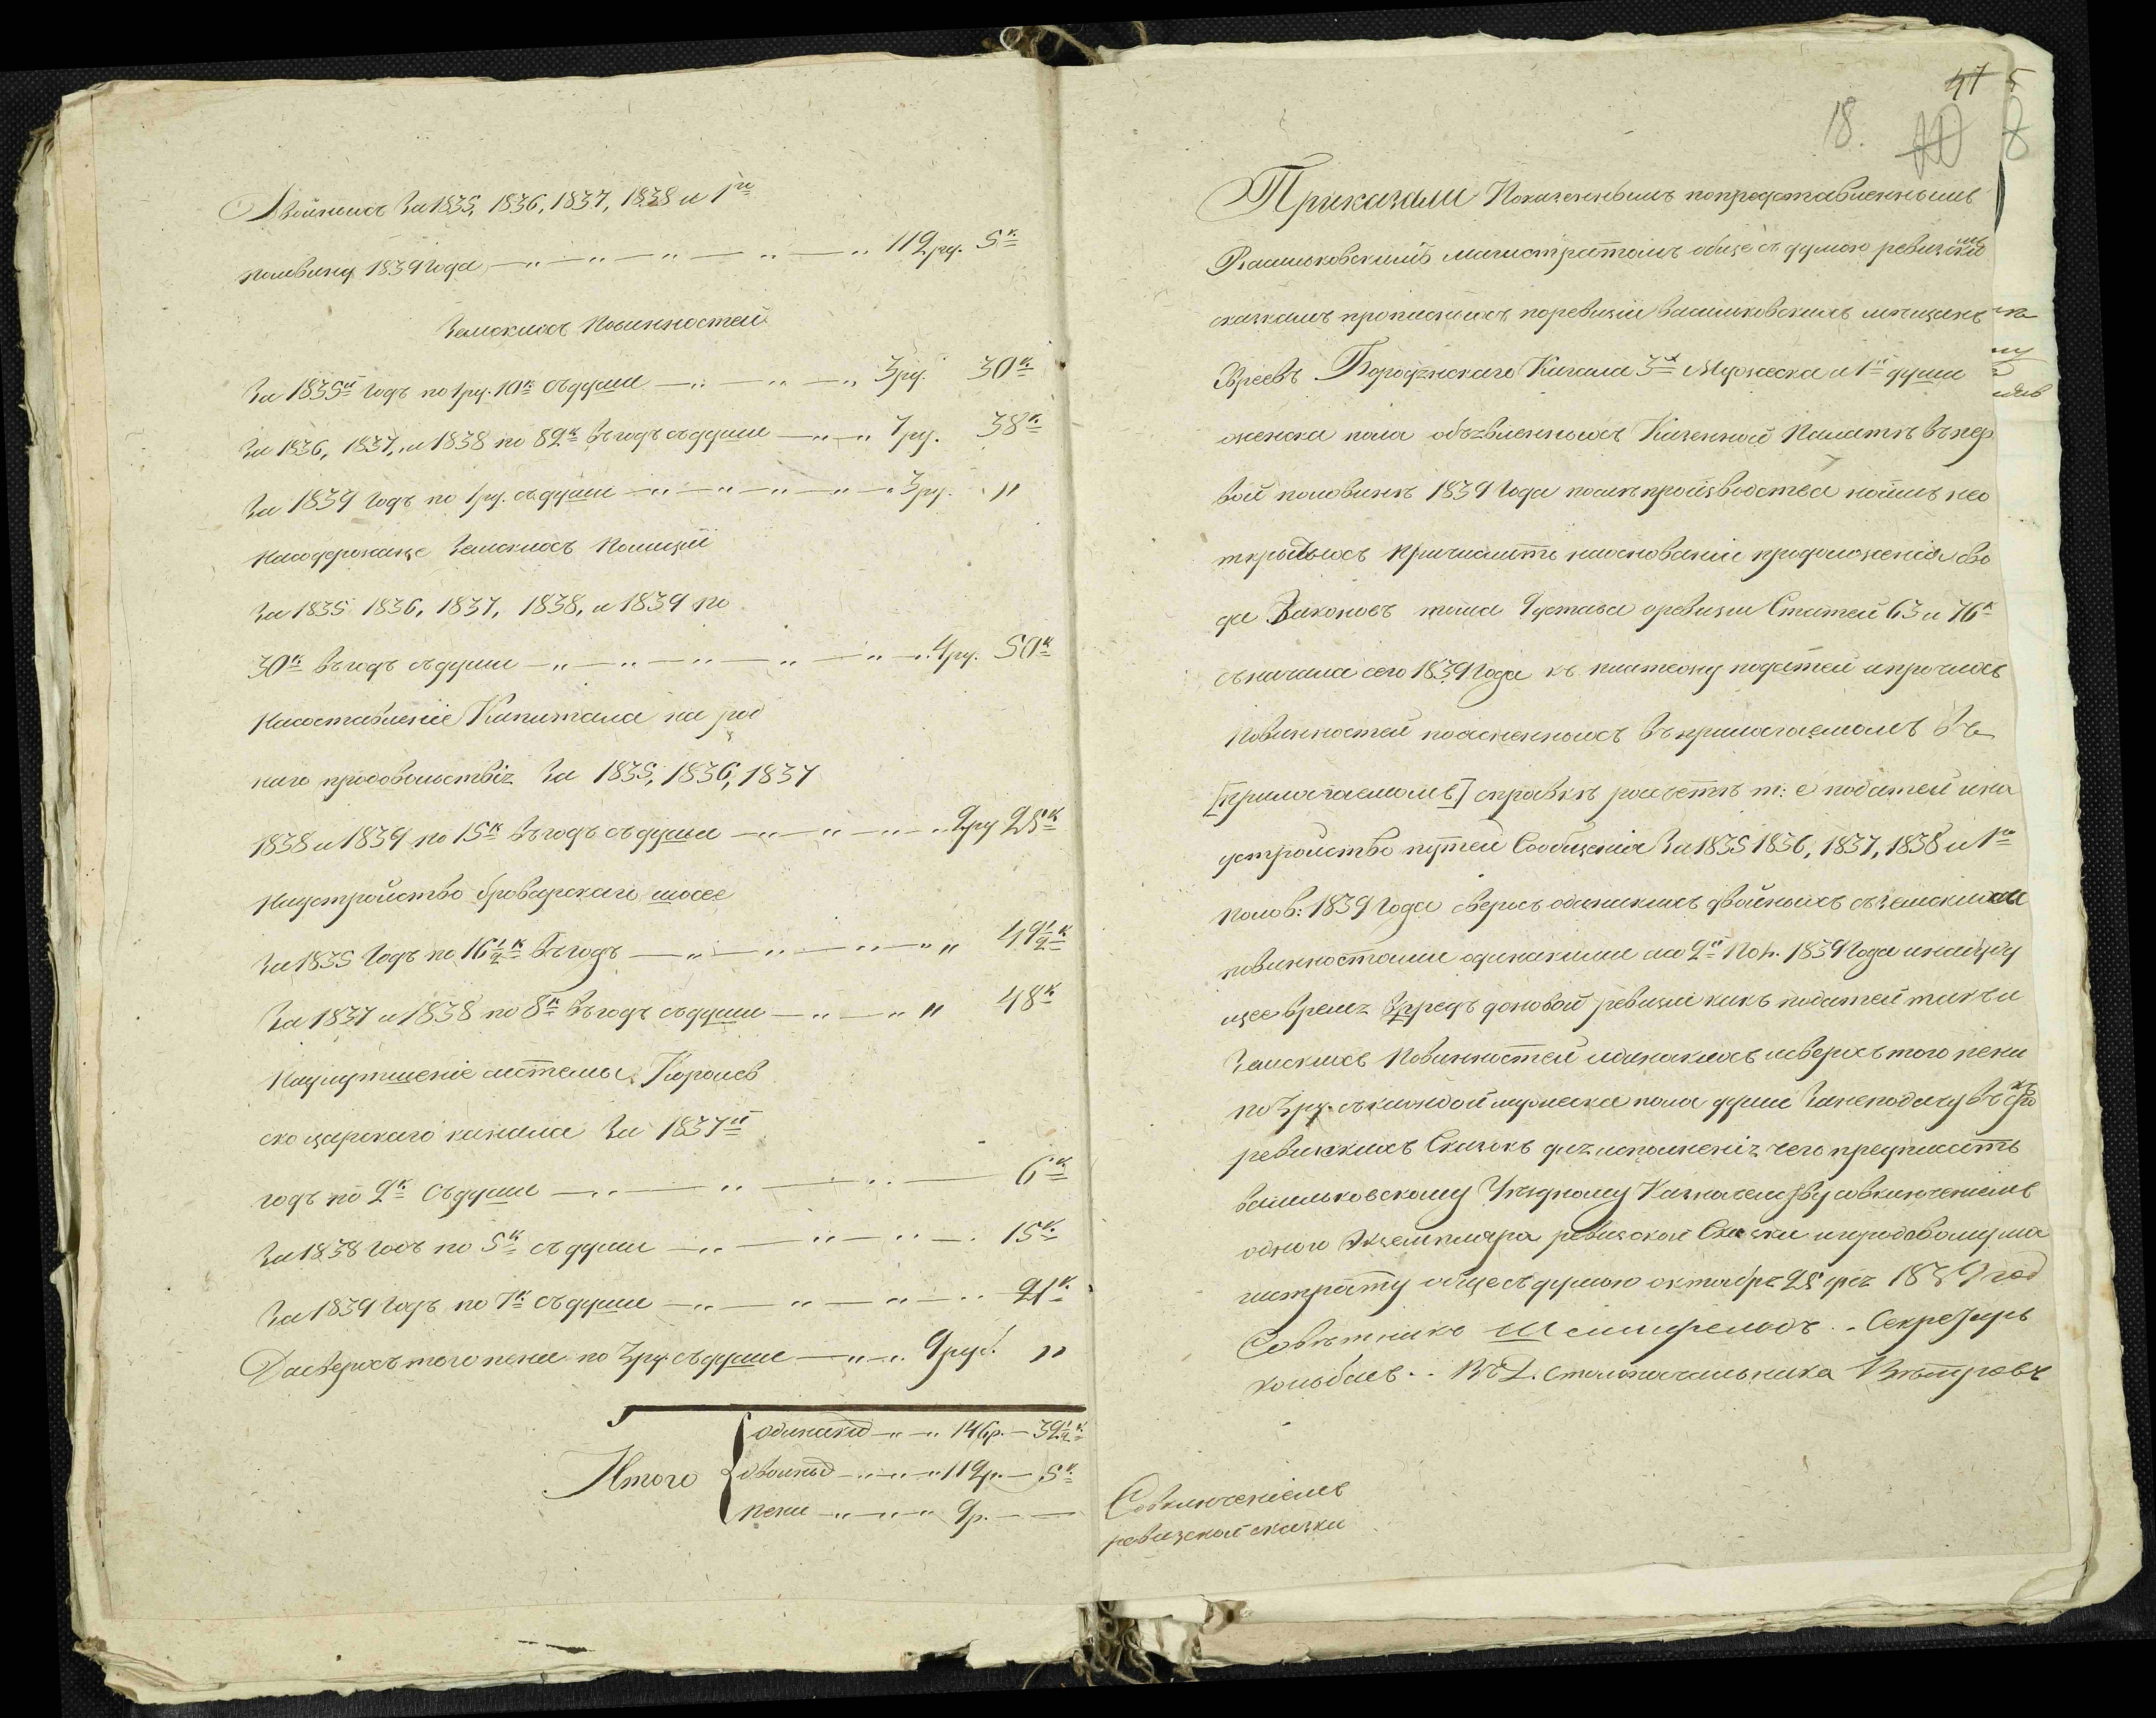 Двойныхъ За 1835, 1836, 1837, 1838 и 1ю
половину 1839 года —„—„—„—„—„ 112 ру. 5к
Земскихъ Повинностей
За 1835й годъ по 1ру. 10к съ души —„—„—„ 3ру. 30к
За 1836, 1837, и 1838 по 82к въ годъ съ души —„—„ 7ру. 38к
За 1839 годъ по 1ру. съ души —„—„—„—„—„ 3ру. „
На содержание Земскихъ Полиций
За 1835 1836, 1837, 1838, и 1839 по
30к въ годъ съ души —„—„—„—„—„—„ 4ру. 50к
На составление Капитала на
наго продовольствія За 1835, 1836, 1837
1838 и 1839 по 15к въ годъ съ души —„—„—„ 2ру 25к
На устройство броварскаго шосее
За 1835 Годъ по 16 1/2к въ годъ —„—„—„—„ 49 1/2к
За 1837 и 1838 по 8к въ годъ съ души —„—„ „ 48к
На улутшеніе системы Королев
ско царскаго канала За 1837й
годъ по 2к съ души —„—„—„— 6к
За 1838 годъ по 5к съ души —„—„—„—. 15к
За 1839 годъ по 7к съ души —„—„—„—„ 21к
Да сверхъ того пени по 3ру. съ души —„—„ 9руб. „
Итого
одинакid —„—„ 146р. — 39 1/2к
двойныd —„—„—„ 112р. — 5к
пени —„—„—„ 9р. — —
47 5
18. 8
Приказали Показеннымъ по представленнымъ
Васильковскимъ магистратомъ обще съ думою ревизскимъ
сказкамъ прописныхъ по ревизіи васильковскихъ мещанъ
Евреевъ Кагала 3х Мужеска и 1й души
женска пола объявленныхъ Казенной Палатѣ въ пер
вой половинѣ 1839 Года по
ткрытыхъ Причислить на основаніи продолженія сво
да Законовъ тома 9 устава о ревизіи Статей 63 и 76к
съ начала сего 1839 Года къ платежу податей и прочихъ
Повинностей поясненныхъ въ прилагаемомъ въ
[прилагаемомъ] справкѣ расчетѣ т: е податей и на
устройство путей Сообщенія За 1835 1836, 1837, 1838 и 1ю
полов: 1839 Года сверхъ одинакихъ двойныхъ съ земскими
повинностями одинакими а со 2й Пол. 1839 Года и на буду
щее время впредь до новой ревизіи какъ податей такъ и
Земскихъ Повинностей одинакихъ и сверхъ того пени
по 3ру. съ каждой мужеска пола души За неподачу въ срокъ
ревизскихъ Сказокъ для исполненія чего предписать
васильковскому Уездному Казначейству со включеніемъ
одного экземпляра ревизской Сказки и городовому ма
гистрату обще съ думою октября 25 дня 1839 год
Совѣтникъ Секретарь
В. Д. столоначальника Вѣтровъ
Со включеніемъ
ревизской сказки